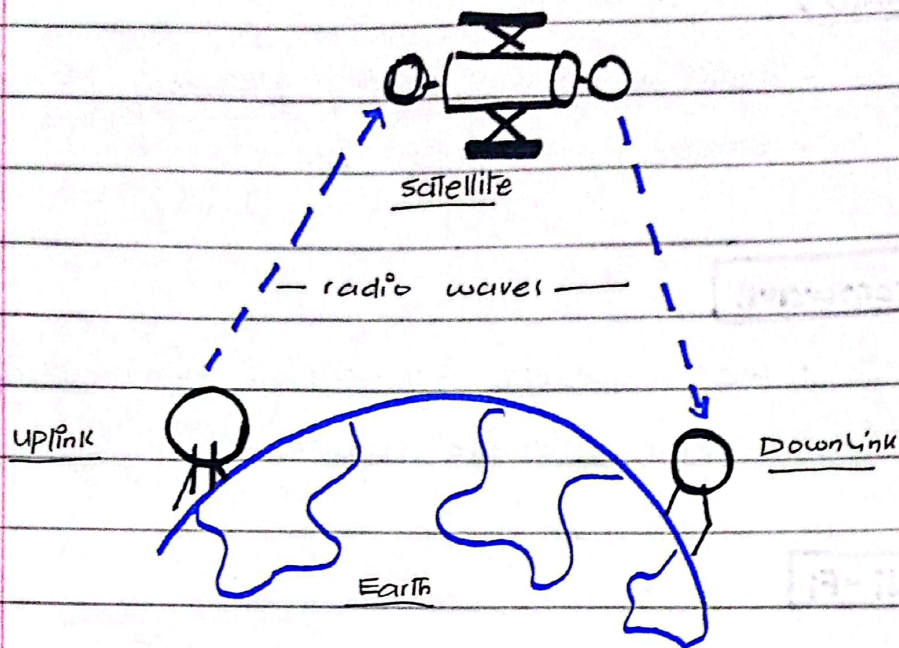 satellite
radio waves
Uplink
DownLink
Earth